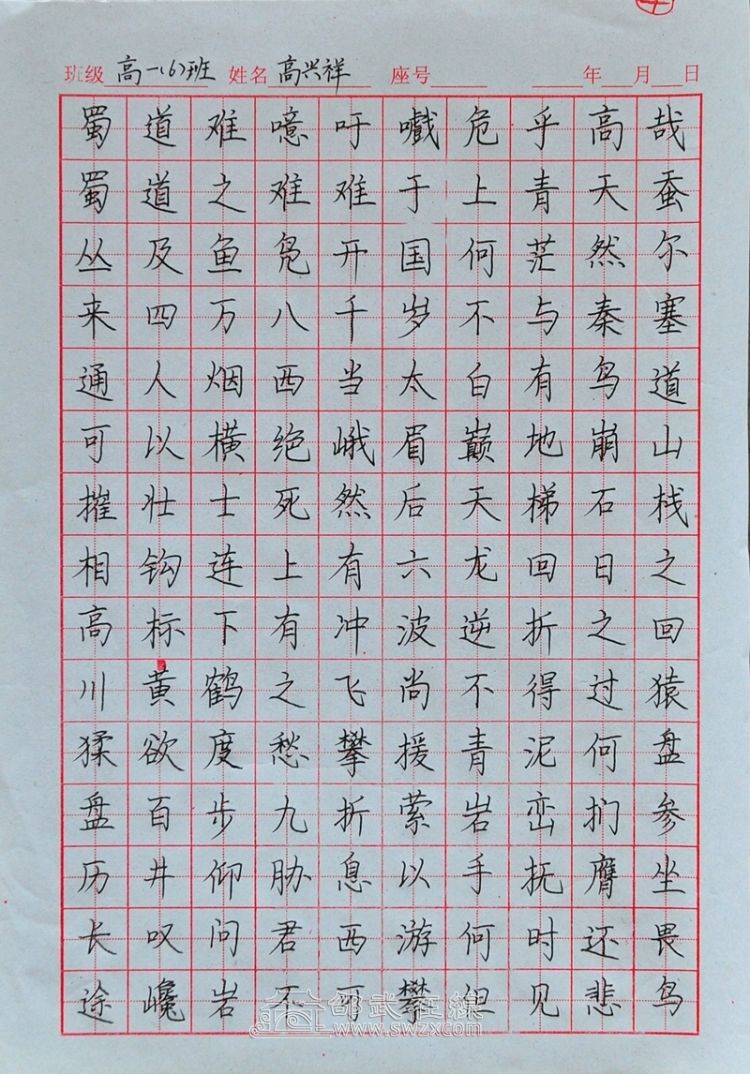 班级 高一(6)班 姓名 高兴祥 座号 年 月 日
蜀道难噫吁嚱危乎高哉
蜀道之难难于上青天蚕
丛及鱼凫开国何茫然尔
来四万八千岁不与秦塞
通人烟西当太白有鸟道
可以横绝峨眉巅地崩山
摧壮士死然后天梯石栈
相钩连上有六龙回日之
高标下有冲波逆折之回
川黄鹤之飞尚不得过猿
猱欲度愁攀援青泥何盘
盘百步九折萦岩峦扪参
历井仰胁息以手抚膺坐
长叹问君西游何时还畏
途巉岩不可攀但见悲鸟
邵武在線
www.swzx.com